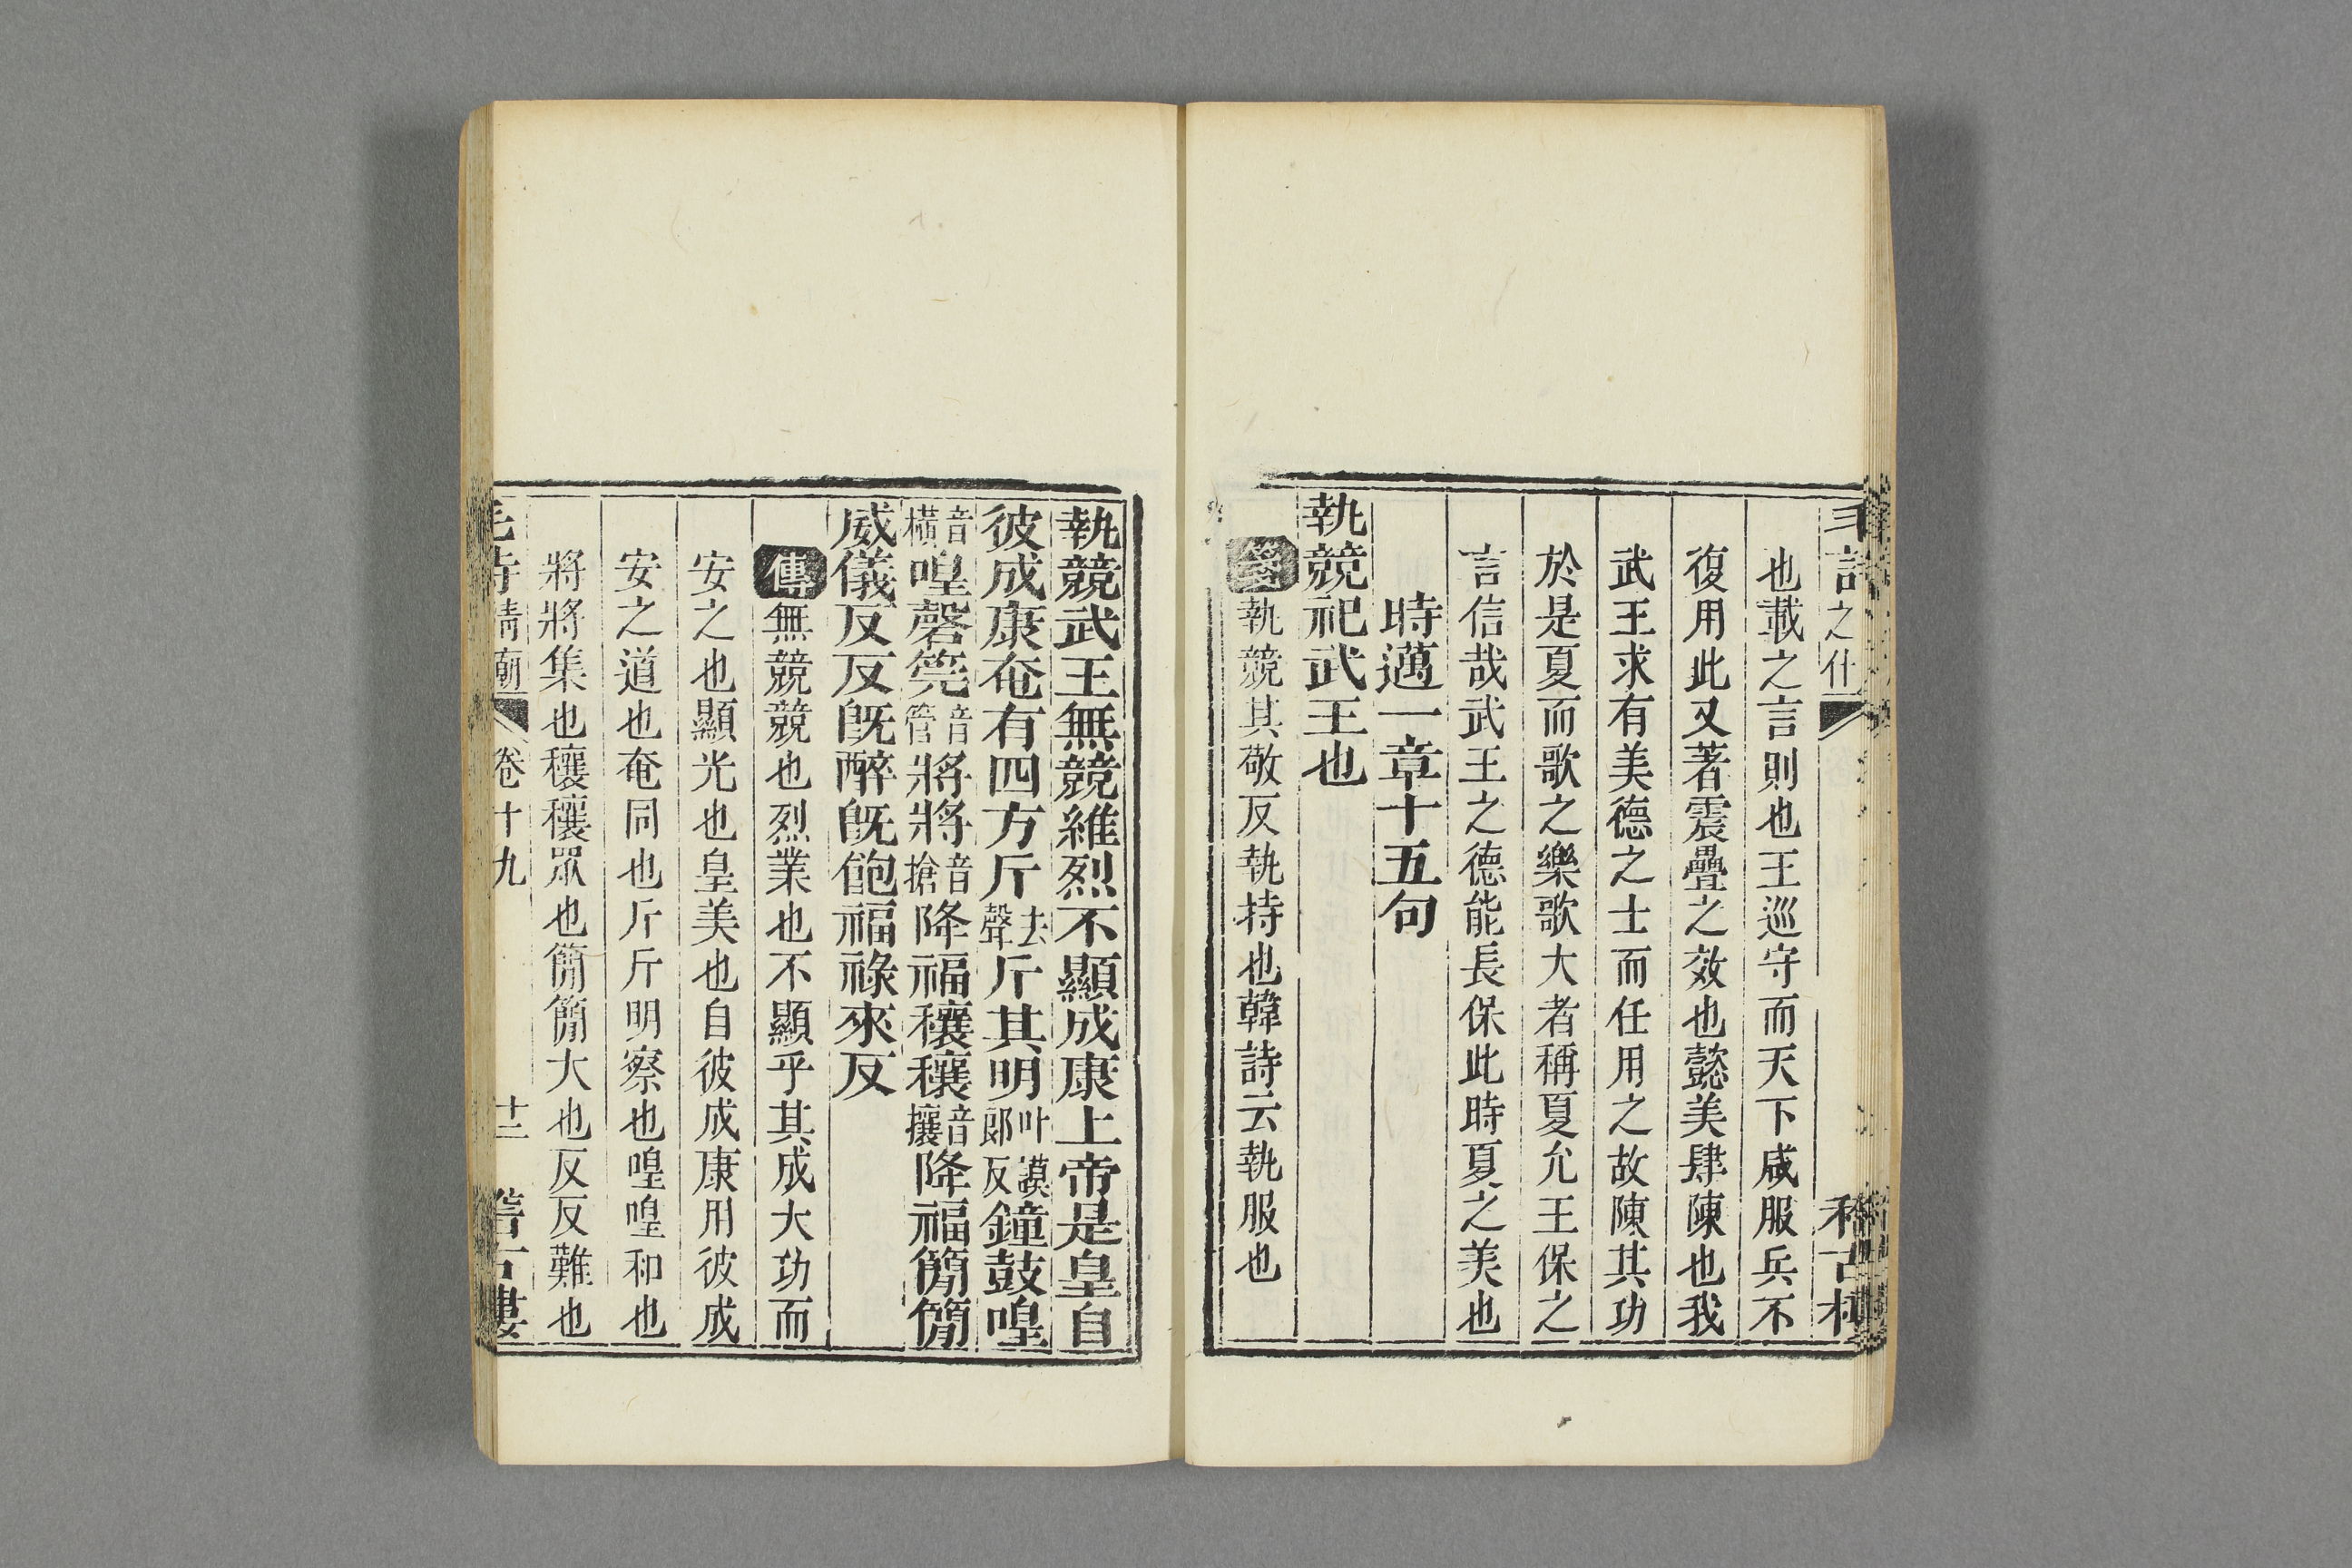 之什
也載之言則也王巡守而天下咸服兵不
復用此又著震疊之效也懿美肆陳也我
武王求有美德之士而任用之故陳其功
於是夏而歌之樂歌大者稱夏允王保之
言信哉武王之德能長保此時夏之美也
時邁一章十五句
執競祀武王也
箋執競其敬反執持也韓詩云執服也
執競武王無競維烈不顯成康上帝是皇自
彼成康奄有四方斤去聲斤其明叶謨郎反鐘鼓喤
音橫喤磬筦音管將將音搶降福穰穰音攘降福簡簡
威儀反反旣醉旣飽福祿來反
傳無競競也烈業也不顯乎其成大功而
安之也顯光也皇美也自彼成康用彼成
安之道也奄同也斤斤明察也喤喤和也
將將集也穰穰眾也簡簡大也反反難也
毛詩清廟 卷十九 十二